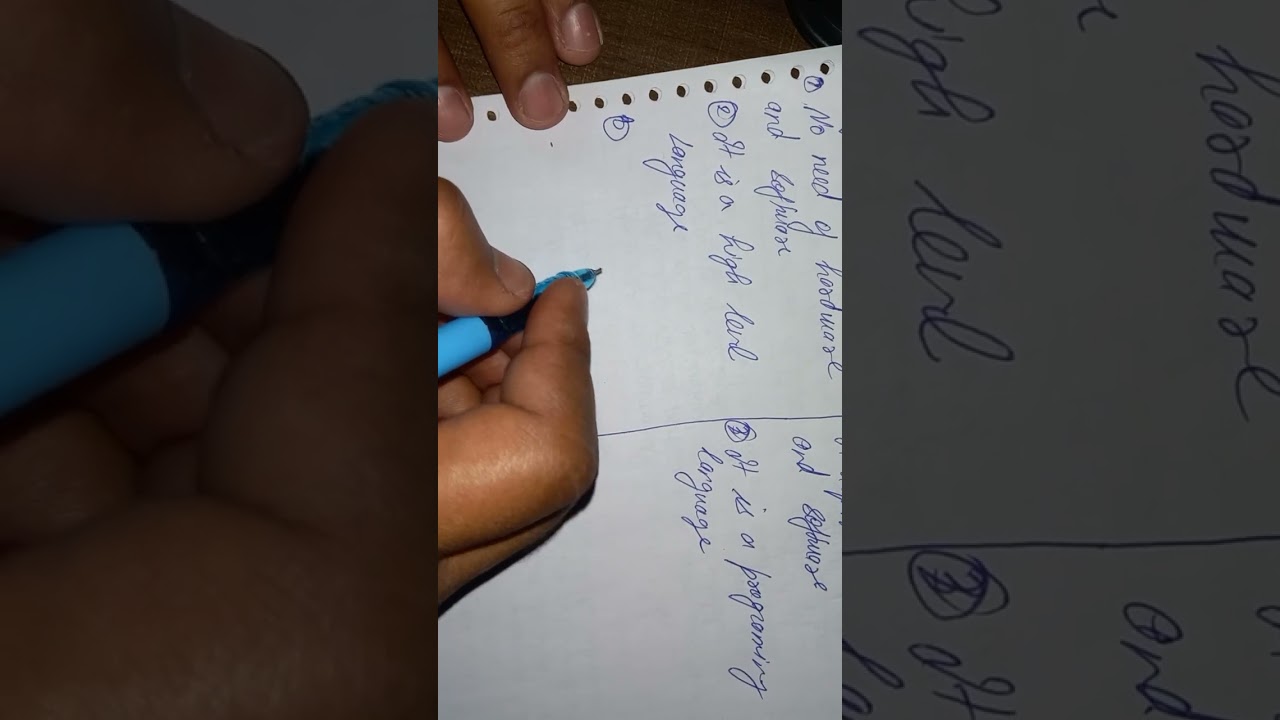 ① No need of hardware
and software
② It is a high level
language
and software
② It is a programing
language